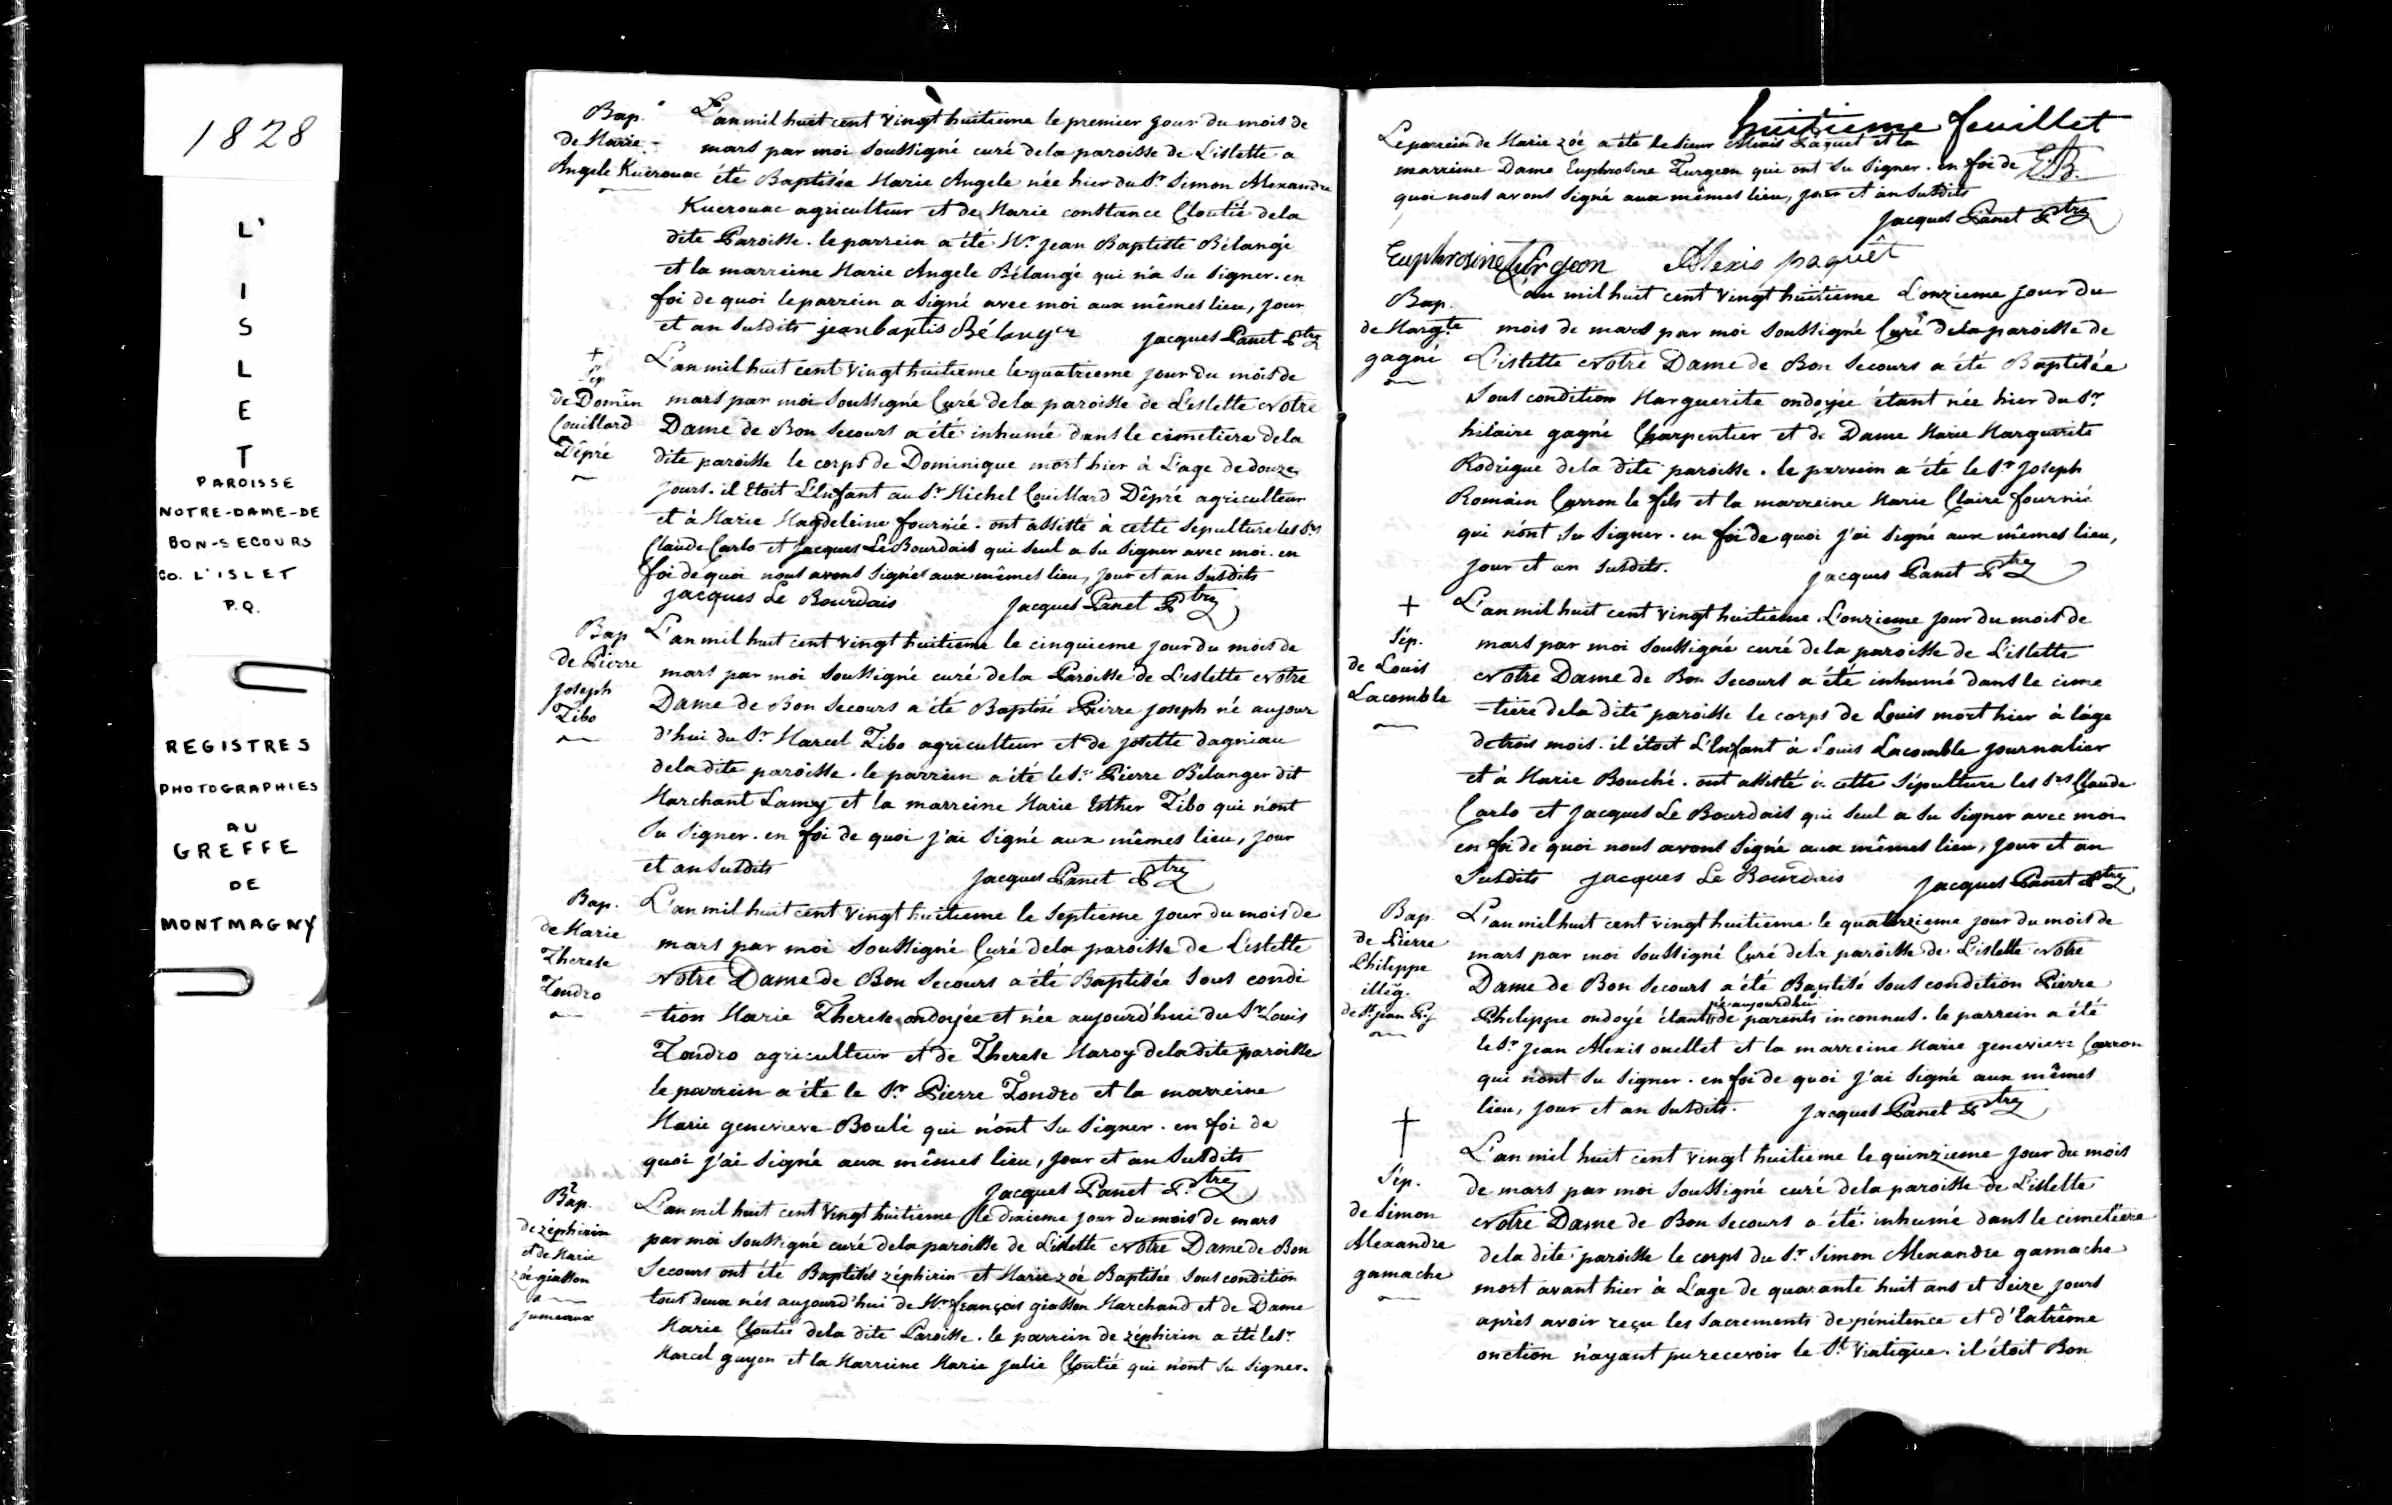 1828
L'
I
S
L
E
T
PAROISSE
NOTRE-DAME-DE
BON-SECOURS
CO. L'ISLET
P.Q.
REGISTRES
PHOTOGRAPHIES
AU
GREFFE
DE
MONTMAGNY
Bap.
de Marie
Angele Kuerouac
L'an mil huit cent vingt huitieme le premier jour du mois de
mars par moi soussigné curé dela paroisse de L'islette a
été Baptisée Marie Angele née hier du Sr Simon Alexandre
Kuerouac agriculteur et de Marie constance Cloutié dela
dite Paroisse. le parrein a été Mr jean Baptiste Bélangé
et la marreine Marie Angele Bélangé qui n'a su signer. en
foi de quoi le parrein a signé avec moi aux mêmes lieu, jour
et an susdits jean baptis Bélanger Jacques Panet Ptre
+
Sep
de Domin
Couillard
Dépré
L'an mil huit cent vingt huitieme le quatrieme jour du mois de
mars par moi soussigné Curé dela paroisse de L'islette Notre
Dame de Bon Secours a été inhumé dans le cimetiere dela
dite paroisse le corps de Dominique mort hier à L'age de douze
jours. il Etoit L'Enfant au Sr Michel Couillard Dépré agriculteur
et à Marie Magdeleine fournié. ont assisté à cette sepulture les Srs
Claude Carlo et Jacques Le Bourdais qui seul a su signer avec moi. en
foi de quoi nous avons signés aux mêmes lieu, jour et an susdits
Jacques Le Bourdais Jacques Panet Ptre
Bap
de Pierre
Joseph
Tibo
L'an mil huit cent vingt huitieme le cinquieme jour du mois de
mars par moi soussigné curé dela Paroisse de L'islette Notre
Dame de Bon Secours a été Baptisé Pierre Joseph né aujour
d'hui du Sr Marcel Tibo agriculteur et de josette dagniau
dela dite paroisse. le parrein a été le Sr Pierre Bélanger dit
Marchant Lamy et la marreine Marie Esther Tibo qui n'ont
su signer. en foi de quoi j'ai signé aux mêmes lieu, jour
et an susdits Jacques Panet Ptre
Bap.
de Marie
Therese
Tondro
L'an mil huit cent vingt huitieme le septieme jour du mois de
mars par moi soussigné Curé dela paroisse de L'islette
Notre Dame de Bon Secours a été Baptisée sous condi
-tion Marie Therese ondoyée et née aujourd'hui du Sr Louis
Tondro agriculteur et de Therese Maroy dela dite paroisse
le parrein a été le Sr Pierre Tondro et la marreine
Marie genevieve Boulé qui n'ont su signer. en foi de
quoi j'ai signé aux mêmes lieu, jour et an susdits
Jacques Panet Ptre
Bap.
de zéphirin
et de Marie
zoé giasson
jumeaux
L'an mil huit cent vingt huitieme le dixieme jour du mois de mars
par moi soussigné curé dela paroisse de L'islette Notre Dame de Bon
Secours ont été Baptisés zéphirin et Marie zoé Baptisée sous condition
tous deux nés aujourd'hui de Mr françois giasson Marchand et de Dame
Marie Cloutié dela dite Paroisse. le parrein de zéphirin a été le Sr
Marcel guyon et la Marreine Marie julie Cloutié qui n'ont su signer.
huitieme feuillet
Le parrein de Marie zoé a été le Sieur Alexis Paquet et la
marreine Dame Euphrosine Turgeon qui ont su signer. en foi de
quoi nous avons signé aux mêmes lieu, jour et an susdits
Jacques Panet Ptre
Euphrosine Turgeon Alexis paquêt
Bap.
de Margte
gagné
L'an mil huit cent vingt huitieme L'onzieme jour du
mois de mars par moi soussigné Curé dela paroisse de
L'islette Notre Dame de Bon Secours a été Baptisée
sous condition Marguerite ondoyée étant née hier du Sr
hilaire gagné Charpentier et de Dame Marie Marguerite
Rodrigue dela dite paroisse. le parrein a été le Sr Joseph
Romain Carron le fils et la marreine Marie Claire fournié
qui n'ont su signer. en foi de quoi j'ai signé aux mêmes lieu,
jour et an susdits. Jacques Panet Ptre
+
Sép.
de Louis
Lacomble
L'an mil huit cent vingt huitieme L'onzieme jour du mois de
mars par moi soussigné curé dela paroisse de L'islette
Notre Dame de Bon Secours a été inhumé dans le cime
-tiere dela dite paroisse le corps de Louis mort hier à l'âge
de trois mois. il étoit L'Enfant à Louis Lacomble journalier
et à Marie Bouché. ont assisté à cette sépulture les Srs Claude
Carlo et Jacques Le Bourdais qui seul a su signer avec moi
en foi de quoi nous avons signé aux mêmes lieu, jour et an
susdits Jacques Le Bourdais Jacques Panet Ptre
Bap.
de Pierre
Philippe
illég.
de St jean
L'an mil huit cent vingt huitieme le quatorzieme jour du mois de
mars par moi soussigné Curé dela paroisse de L'islette Notre
Dame de Bon Secours a été Baptisé sous condition Pierre
né aujourdhui
Philippe ondoyé étant de parents inconnus. le parrein a été
le Sr jean Alexis ouellet et la marreine Marie genevieve Carron
qui n'ont su signer. en foi de quoi j'ai signé aux mêmes
lieu, jour et an susdits. Jacques Panet Ptre
+
Sép.
de Simon
Alexandre
gamache
L'an mil huit cent vingt huitieme le quinzieme jour du mois
de mars par moi soussigné curé dela paroisse de L'islette
Notre Dame de Bon Secours a été inhumé dans le cimetiere
dela dite paroisse le corps du Sr Simon Alexandre gamache
mort avant hier à L'age de quarante huit ans et seize jours
après avoir reçu les sacrements de pénitence et d'Extrême
onction n'ayant pu recevoir le St Viatique. il étoit Bon